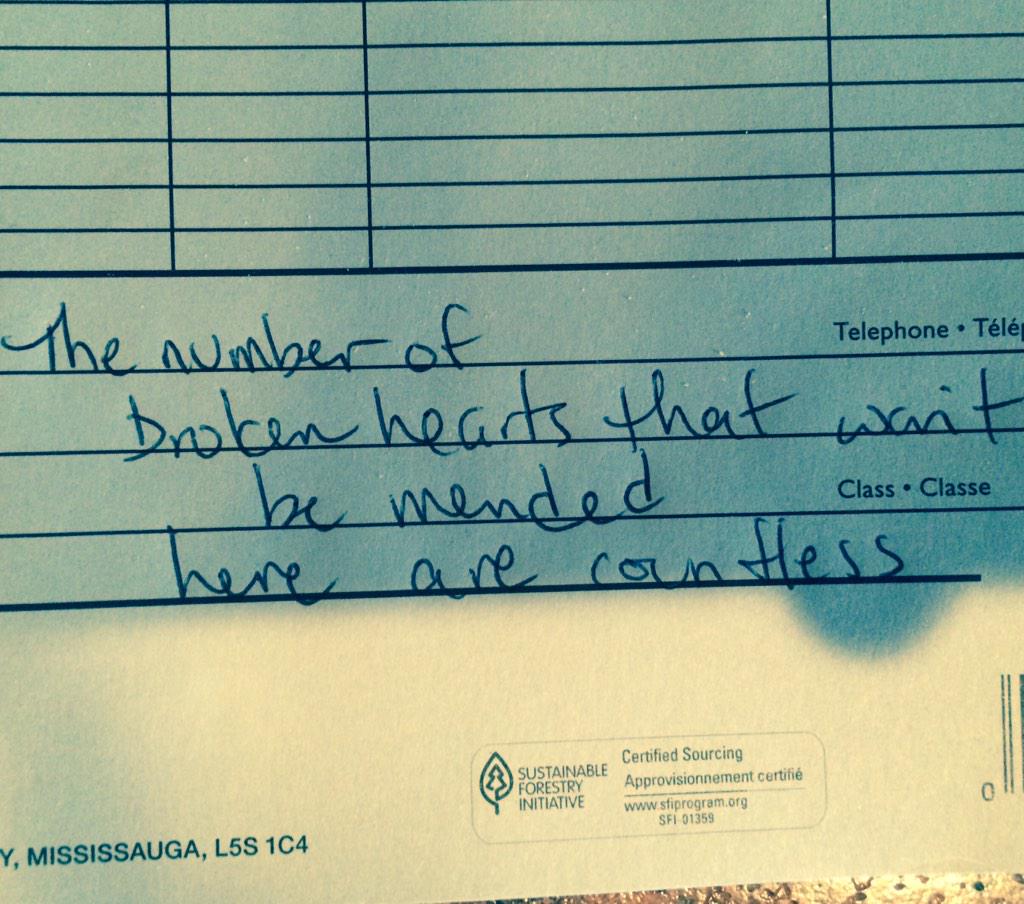 The number of
Telephone • Télép
broken hearts that won't
be mended
Class • Classe
here are countless
SUSTAINABLE
FORESTRY
INITIATIVE
Certified Sourcing
Approvisionnement certifié
www.sfiprogram.org
SFI-01359
0
Y, MISSISSAUGA, L5S 1C4